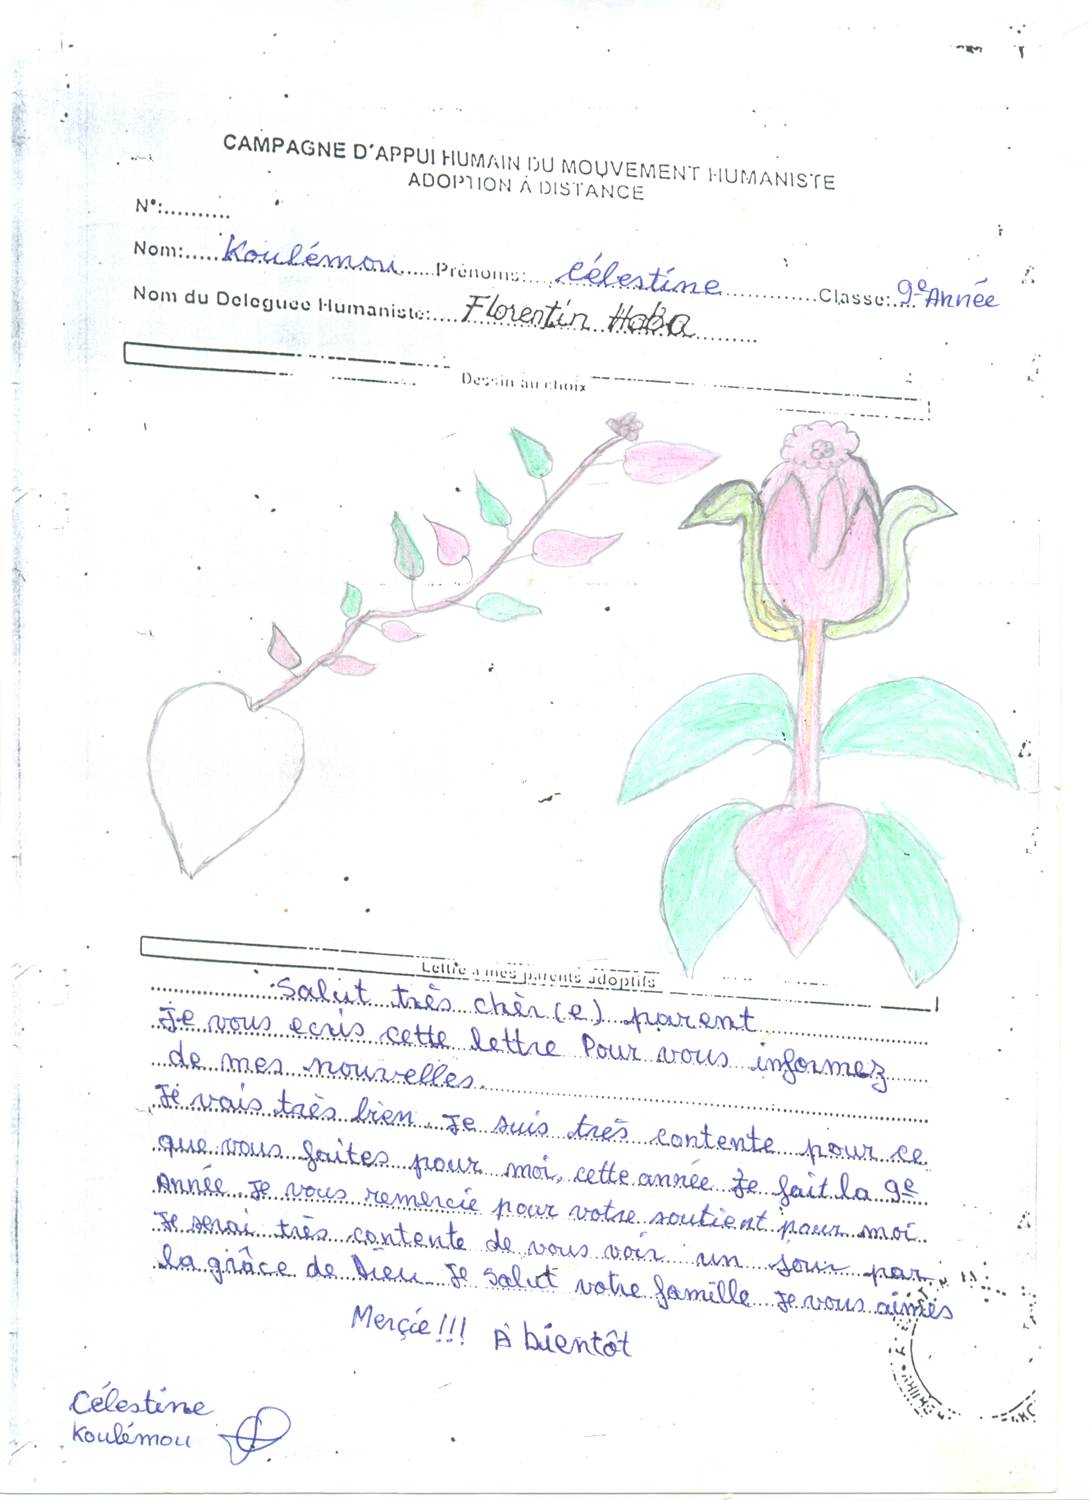 CAMPAGNE D'APPUI HUMAIN DU MOUVEMENT HUMANISTE
ADOPTION À DISTANCE
N°:..........
Nom:.....Koulémou.....Prénoms:....Célestine............Classe:....9e Année
Nom du Deleguee Humaniste:....Florentin Haba.........
Dessin au choix
Lettre a mes parents adoptifs
Salut très chèr(e) parent
Je vous ecris cette lettre Pour vous informez
de mes nouvelles.
Je vais très bien. Je suis très contente pour ce
que vous faites pour moi, cette année Je fait la 9e
Année. Je vous remercie pour votre soutient pour moi
Je serai très contente de vous voir un jour par
la grâce de Dieu. Je Salut votre famille Je vous aimes
Merçie!!! À bientôt
Célestine
Koulémou